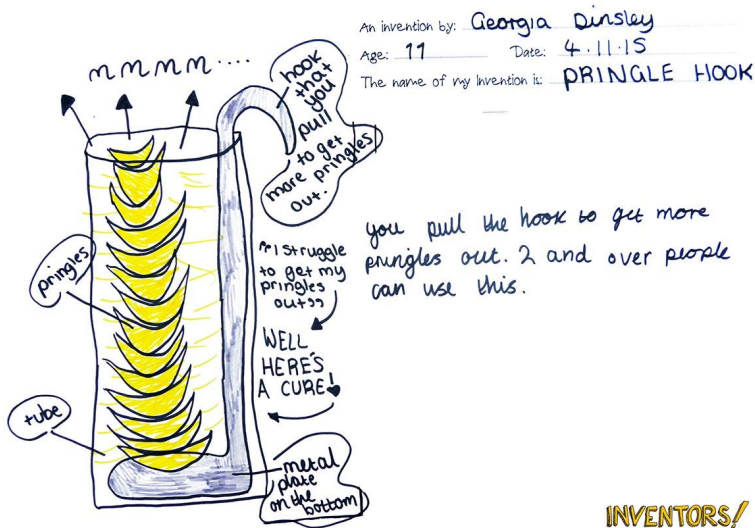 An invention by: Georgia Dinsley
Age: 11 Date: 4.11.15
The name of my Invention is: PRINGLE HOOK
mmmm....
hook
that
you
pull
to get
more pringles
out.
you pull the hook to get more
pringles out. 2 and over people
can use this.
"I struggle
to get my
pringles
out"
WELL
HERE'S
A CURE!
pringles
tube
metal
plate
on the
bottom
INVENTORS!